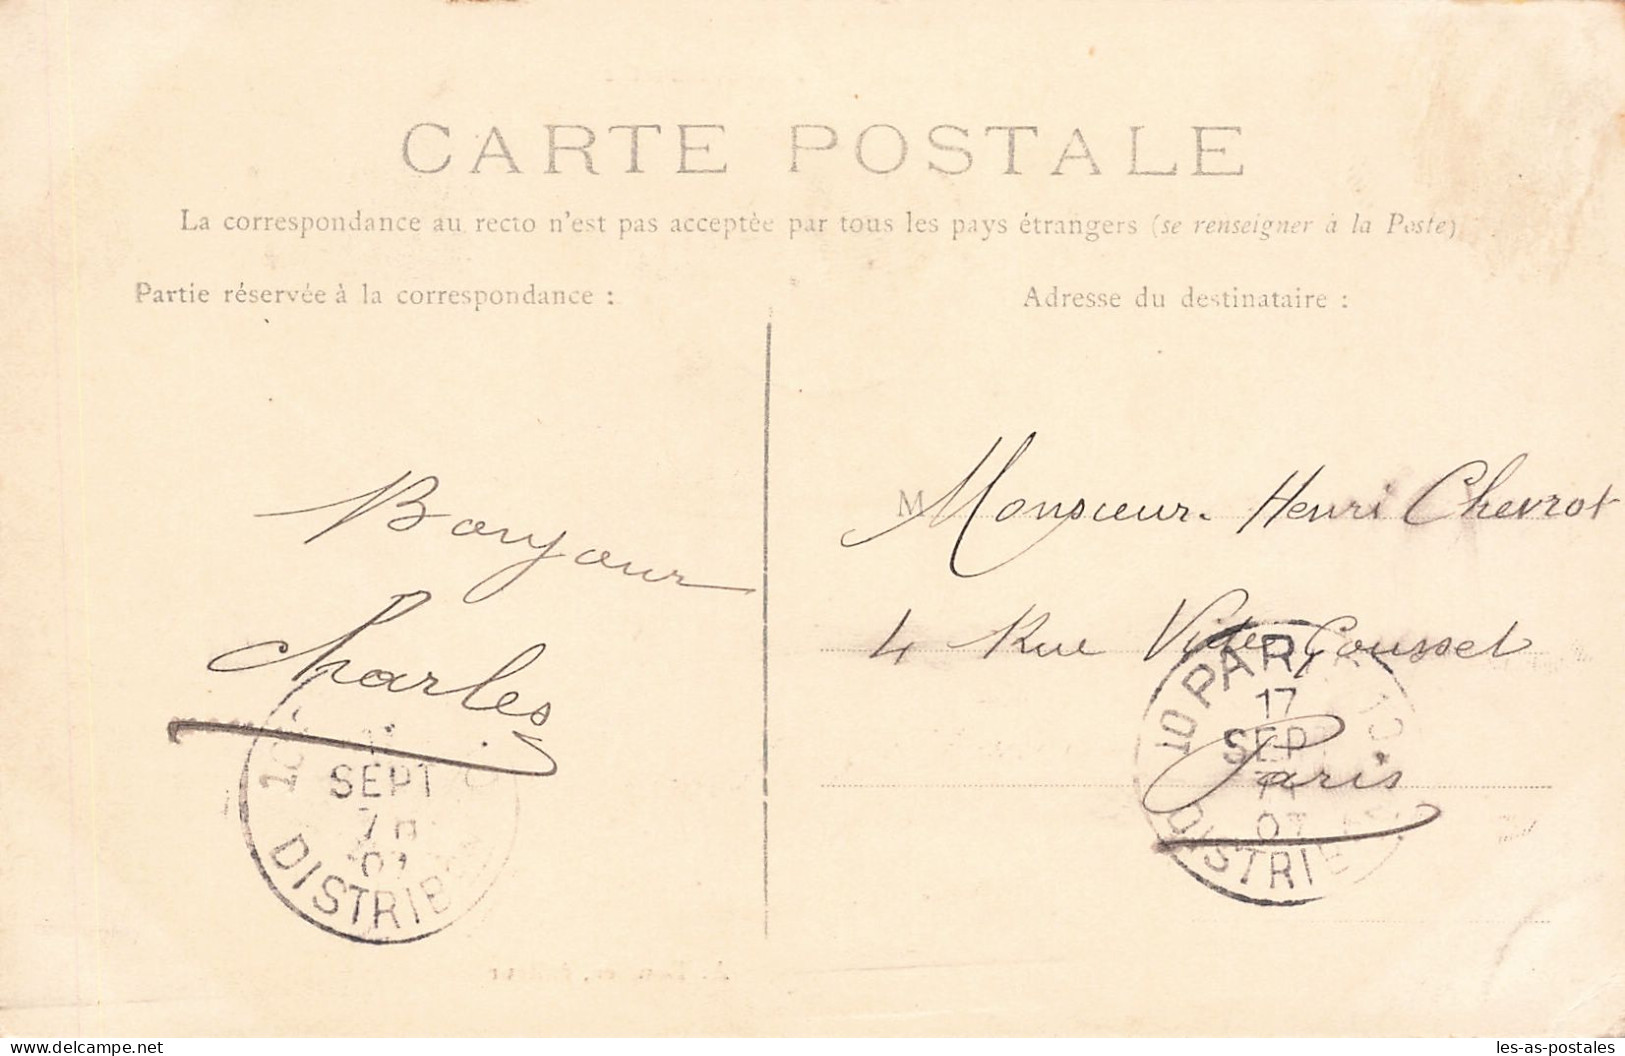 CARTE POSTALE
La correspondance au recto n'est pas acceptée par tous les pays étrangers (se renseigner à la Poste)
Partie réservée à la correspondance :
Adresse du destinataire :
Bonjour
Charles
M Monsieur Henri Chevrot
4 Rue Villet Cousset
Paris
SEPT
DISTRIB
10 PARIS
17
SEPT
07
DISTRIB
www.delcampe.net
les-as-postales